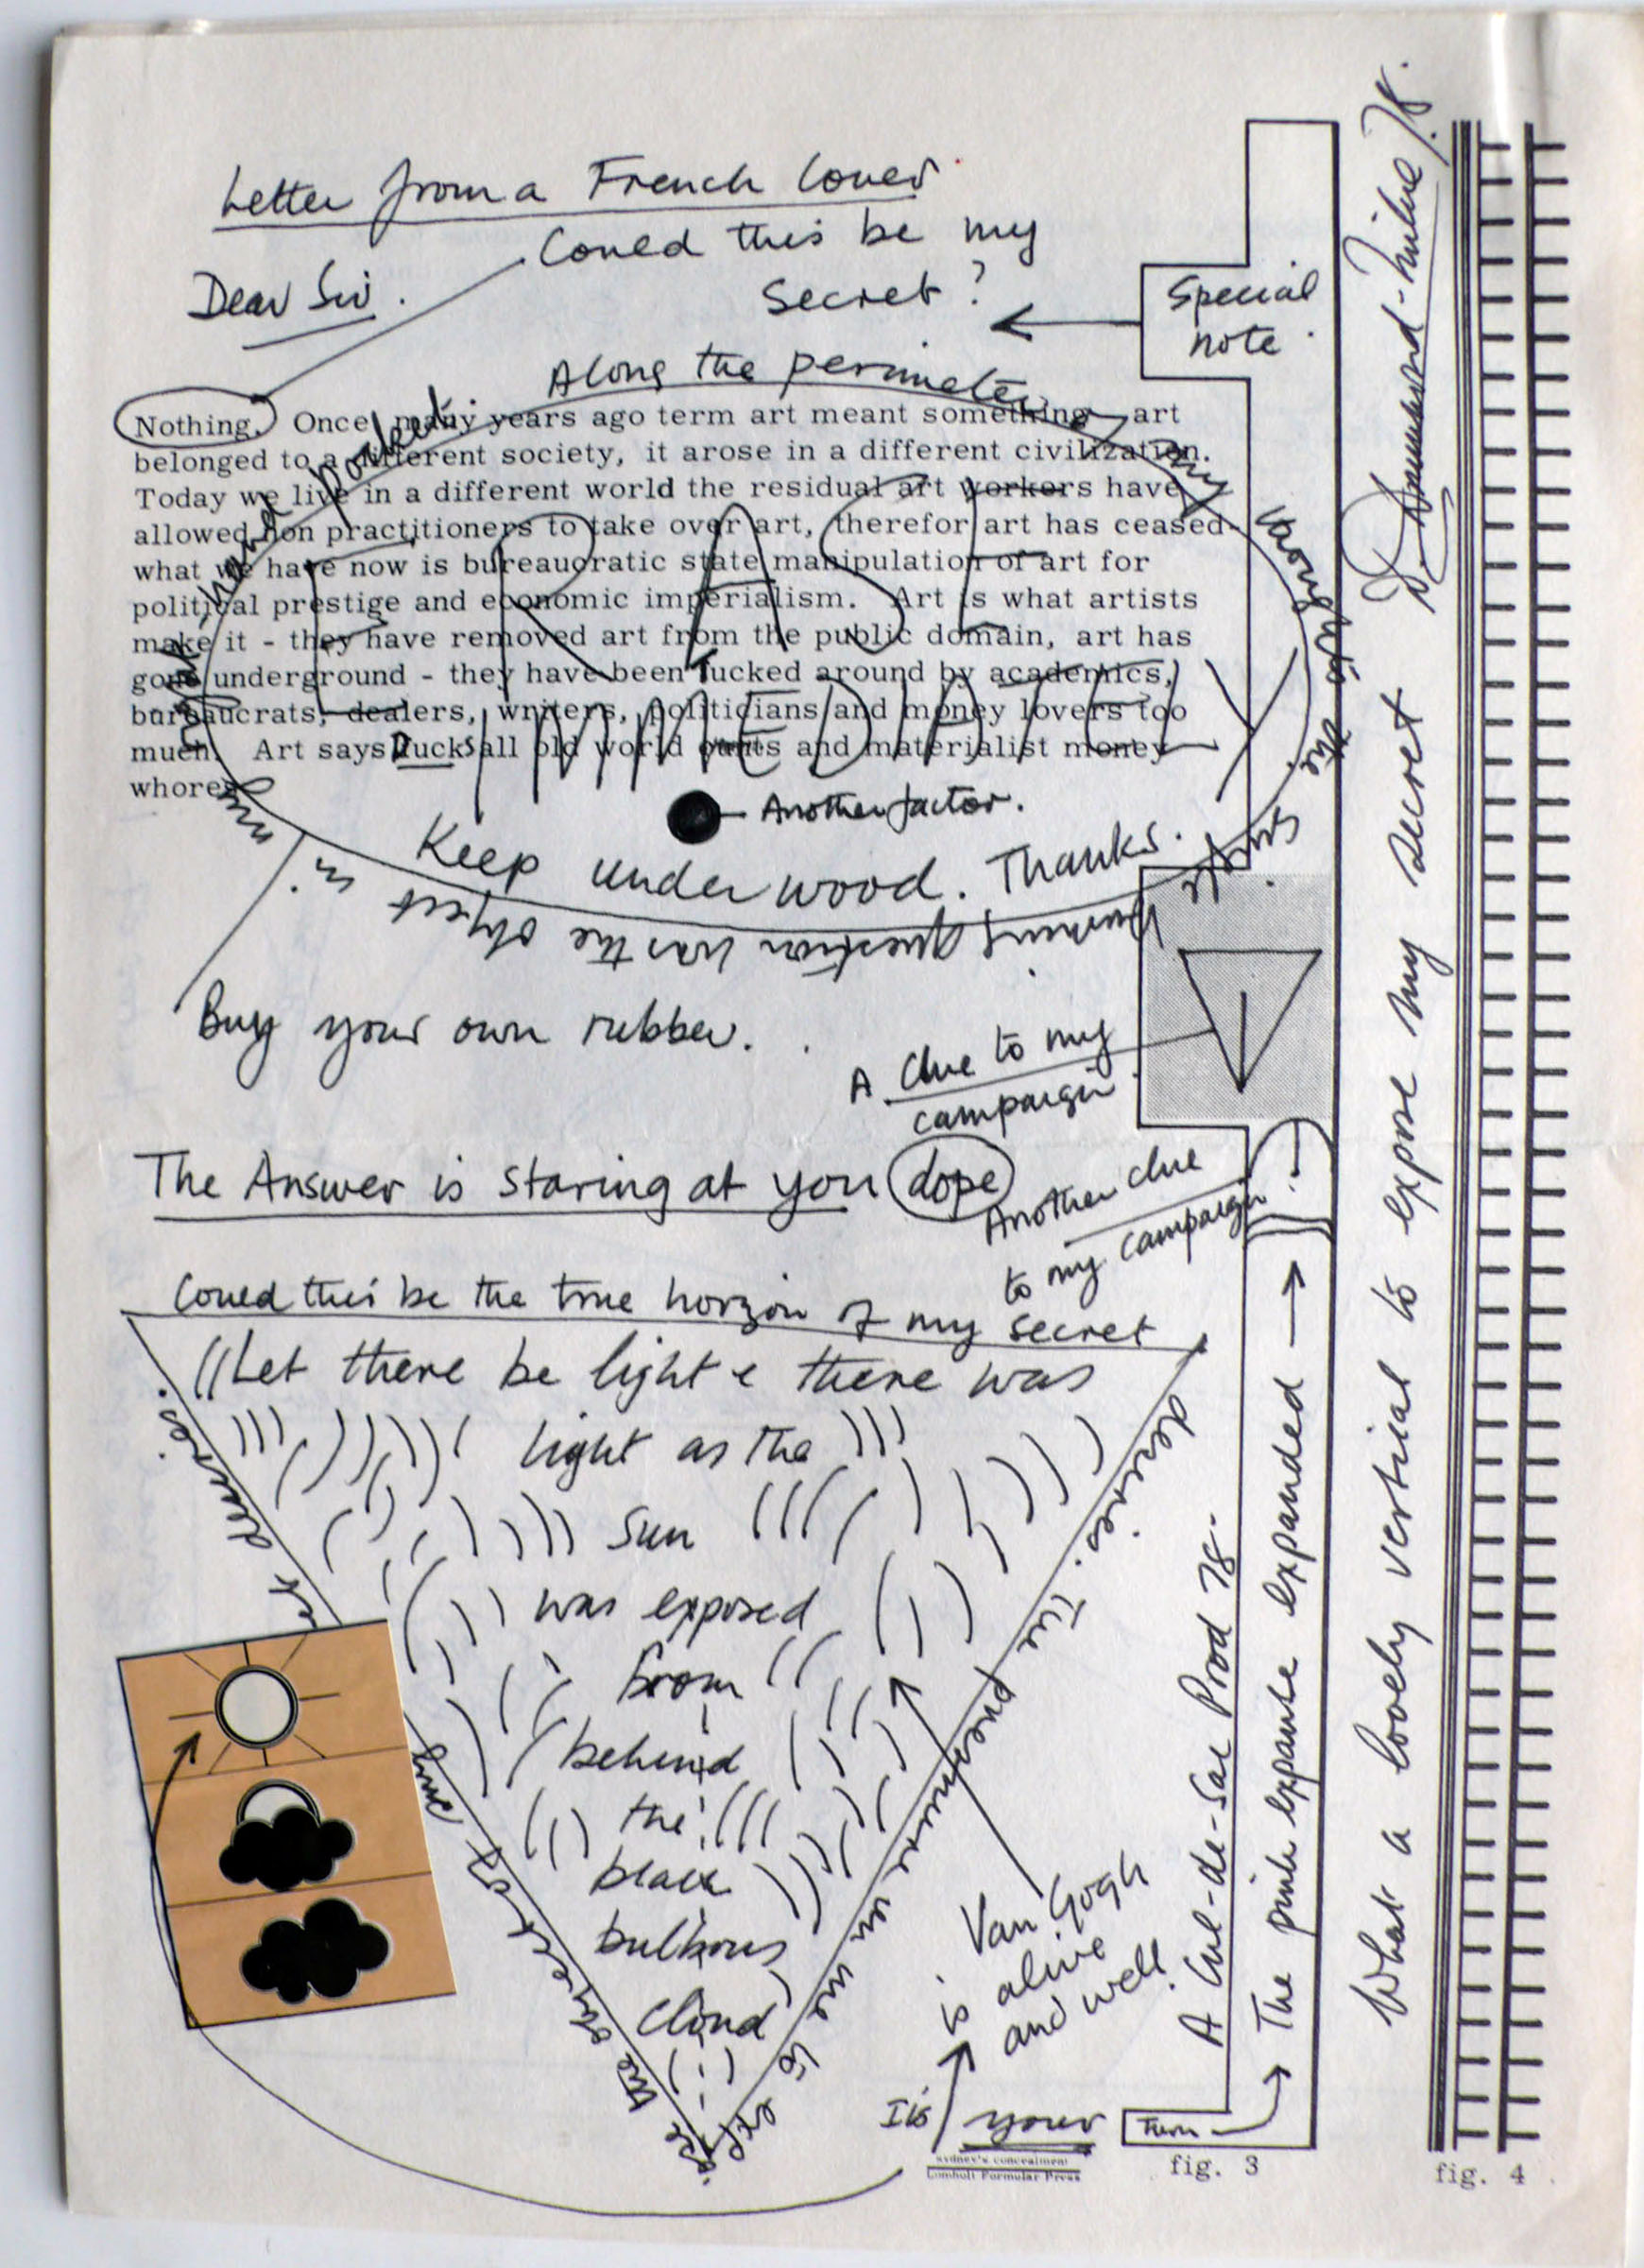 Letter from a French Lover
Could this be my
Secret?
Dear Sir.
Special
note.
Along the perimeter of my
Nothing. Once many years ago term art meant something, art
belonged to a different society, it arose in a different civilization.
Today we live in a different world the residual art workers have
allowed non practitioners to take over art, therefor art has ceased
what we have now is bureaucratic state manipulation of art for
political prestige and economic imperialism. Art is what artists
make it - they have removed art from the public domain, art has
gone underground - they have been fucked around by academics,
bureaucrats, dealers, writers, politicians and money lovers too
much. Art says Fucks all old world and materialist money
whores
ERASE
IMMEDIATELY
Another factor.
Keep under wood. Thanks.
question was the object in
my
pocket.
Buy your own rubber.
A clue to my
campaign
The Answer is staring at you dope
Another clue
to my campaign.
Could this be the true horizon of my secret
"Let there be light & there was
light as the
Sun
was exposed
from
behind
the
black
bulbous
cloud
desires. The
the object of my
Van Gogh
is alive
and well.
It's your
Sydney's concealment
Lomholt Formular Press
A Cul-de-Sac Prod 78.
Turn
The pink expanse expanded
fig. 3
What a lovely vertical to expose my secret
78.
fig. 4